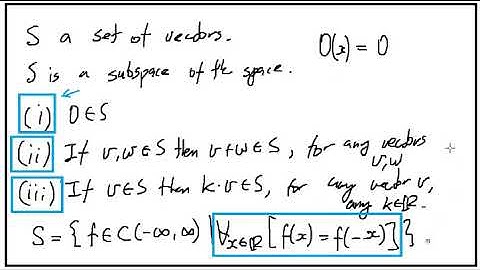 S a set of vectors.
O(x) = 0
S is a subspace of the space.
(i) O∈S
(ii) If u,w∈S then u+w∈S, for any vectors u,w
(iii) If u∈S then k·u∈S, for any vector u, any k∈ℝ.
S = { f∈C(-∞,∞) | ∀x∈ℝ [f(x) = f(-x)] }